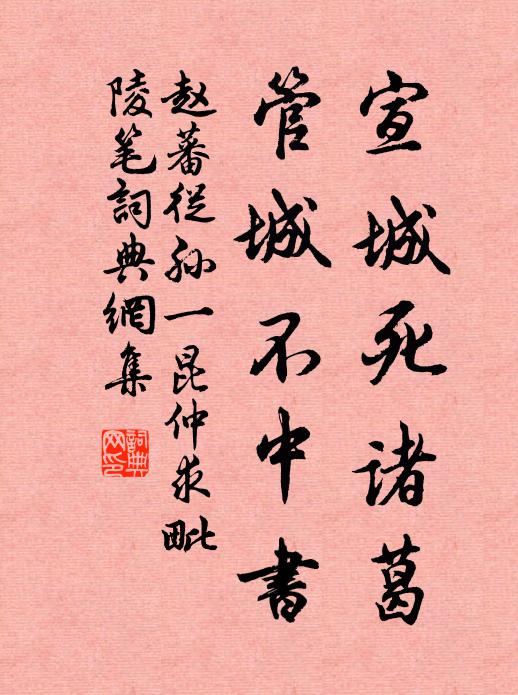 宣城死诸葛
管城不中書
赵蕃從孙一昆仲求毗
陵笔詞典網集
詞典
网印